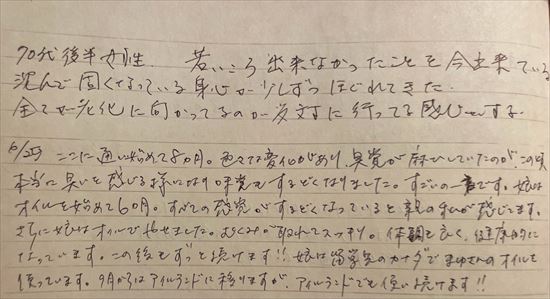 70代後半女性. 若いころ出来なかったことを今出来ている
沈んで固くなっている身心が少しずつほどれてきた.
全てが老化に向かってるのが反対に行ってる感じがする.
6/25 ここに通い始めて8ヵ月。色々な変化があり、臭覚が麻ひしていたのが、この頃
本当に臭いを感じる様になり味覚もするどくなりました。すごいの一言です。娘は
オイルを始めて6ヵ月。すべての感覚がするどくなっていると親の私が感じてます。
さらに娘はオイルでやせました。むくみが取れてスッキリ。体調も良く、健康的に
なっています。この後もずっと続けます!! 娘は留学先のカナダでまゆさんのオイルを
使っています。9月からはアイルランドに移りますが、アイルランドでも使い続けます!!